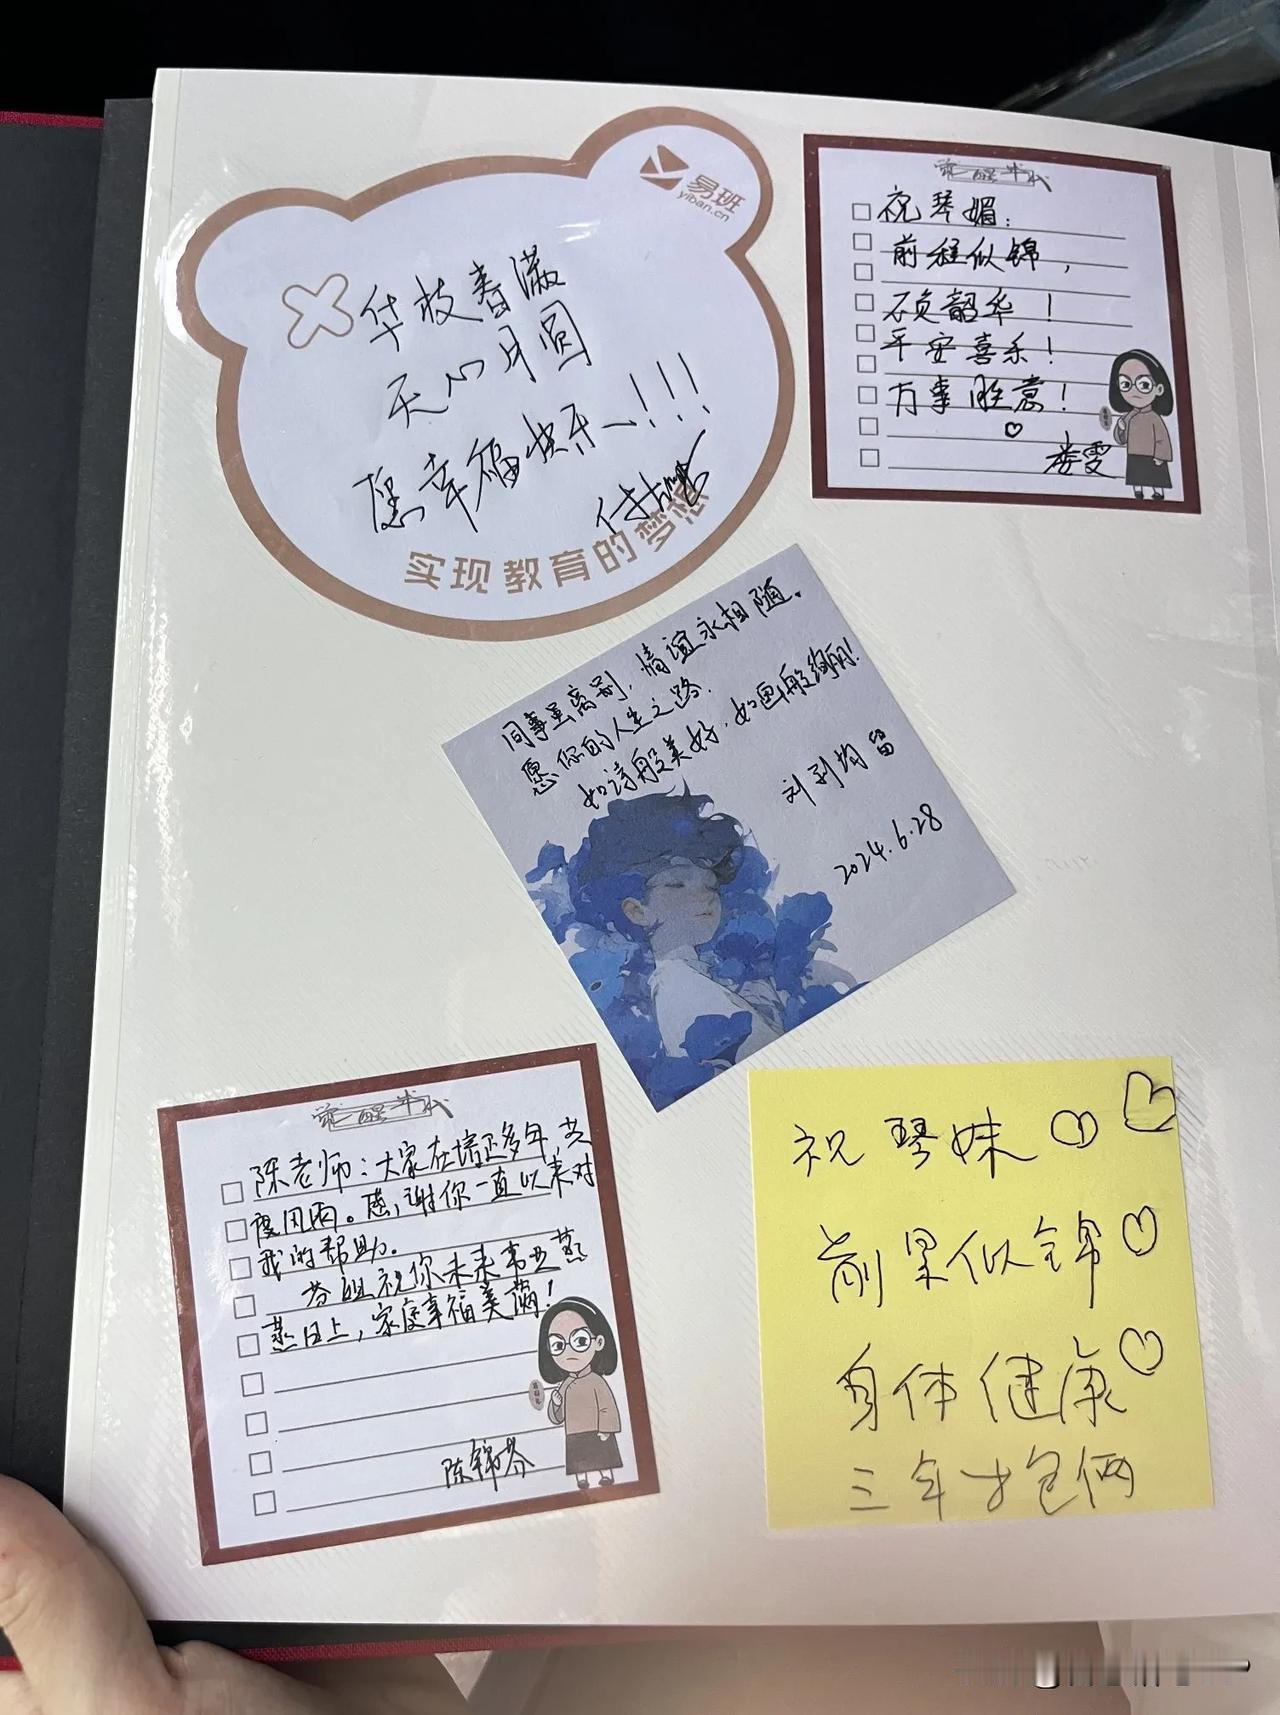 易班
yiban.cn
华枝春满
天心月圆
愿幸福快乐~!!!
实现教育的梦想
觉醒年代
祝琴媚:
前程似锦,
不负韶华!
平安喜乐!
万事胜意!
娄雯
同事虽离别,情谊永相随。
愿你的人生之路,
如诗般美好,如画般绚丽!
留
2024.6.28
觉醒年代
陈老师:大家在培正多年,共
度风雨。感谢你一直以来对
我的帮助。
芬姐祝你未来事业蒸
蒸日上,家庭幸福美满!
陈锦芬
祝琴妹
前果似锦
身体健康
三年才包俩